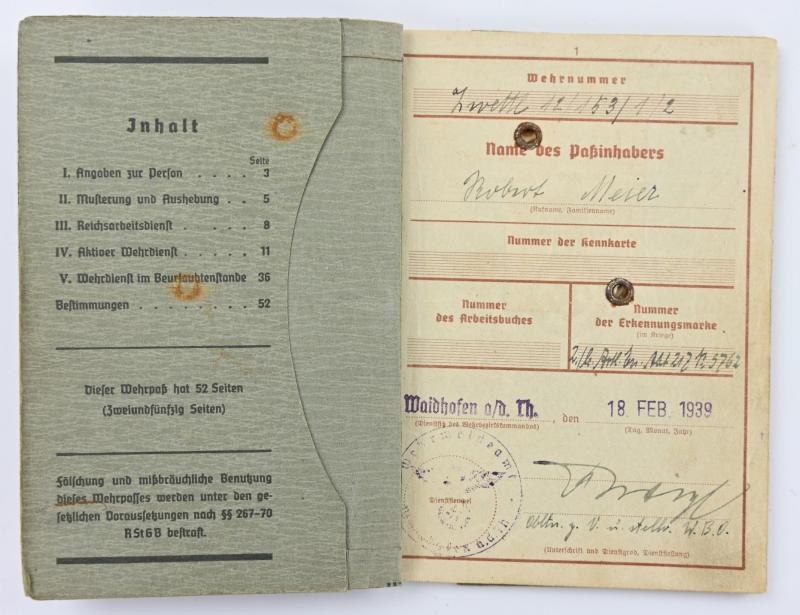 Inhalt
Seite
I. Angaben zur Person . . . . 3
II. Musterung und Aushebung . . 5
III. Reichsarbeitsdienst . . . . 8
IV. Aktiver Wehrdienst . . . . 11
V. Wehrdienst im Beurlaubtenstande 36
Bestimmungen . . . . . . . . 52
Dieser Wehrpaß hat 52 Seiten
(Zweiundfünfzig Seiten)
Fälschung und mißbräuchliche Benutzung
dieses Wehrpasses werden unter den ge-
setzlichen Voraussetzungen nach §§ 267–70
RStGB bestraft.
1
Wehrnummer
Zwettl 12/153/1/2
Name des Paßinhabers
Robert Meier
(Rufname, Familienname)
Nummer der Kennkarte
Nummer
des Arbeitsbuches
Nummer
der Erkennungsmarke
(im Kriege)
217 5762
Waidhofen a/d. Th., den 18. FEB. 1939
(Dienstsitz des Wehrbezirkskommandos) (Tag, Monat, Jahr)
Wehrmeldeamt
Dienststempel
Obltn. z. V. u. stellv. W.B.O.
(Unterschrift und Dienstgrad, Dienststellung)